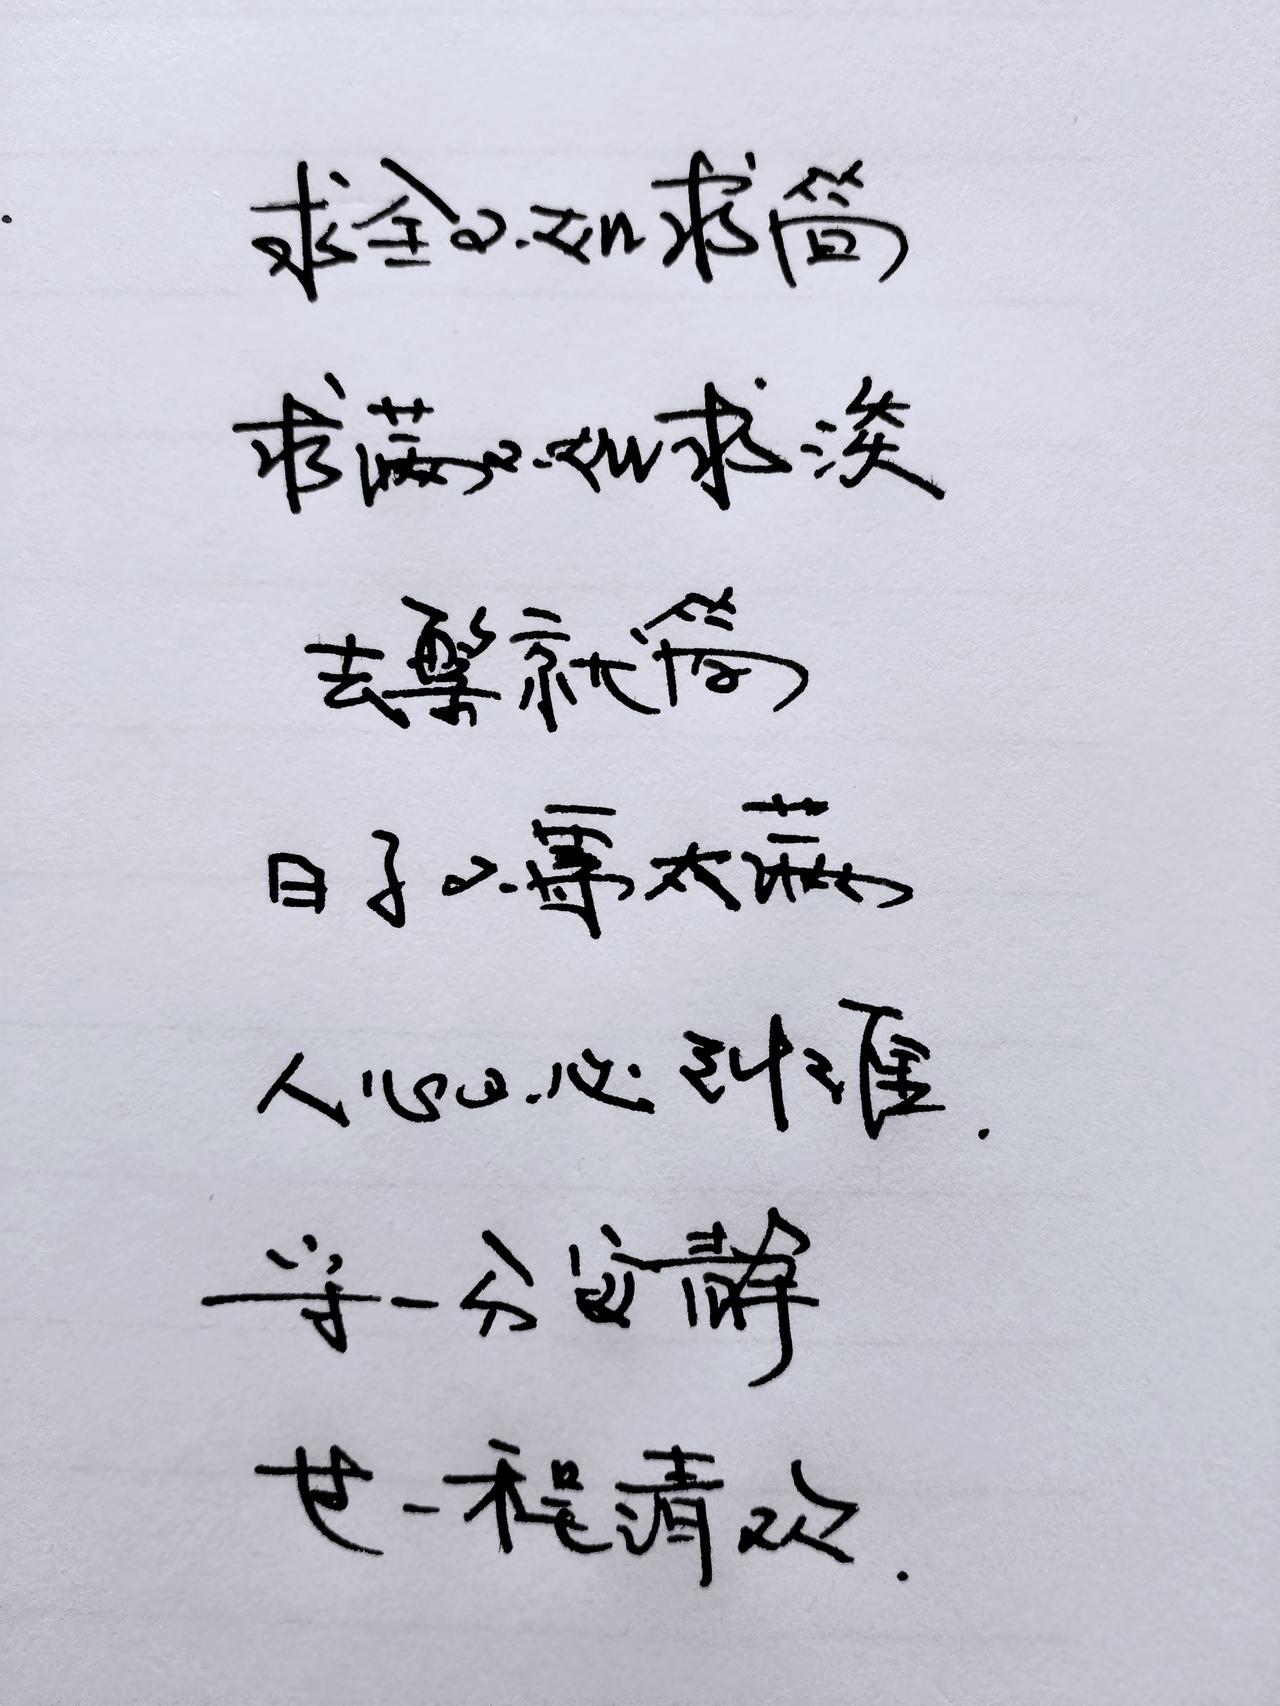 求全不如求简
求满不如求淡
去繁就简
日子不需太满
人心不必纠缠.
守一分寂静
一程清欢.